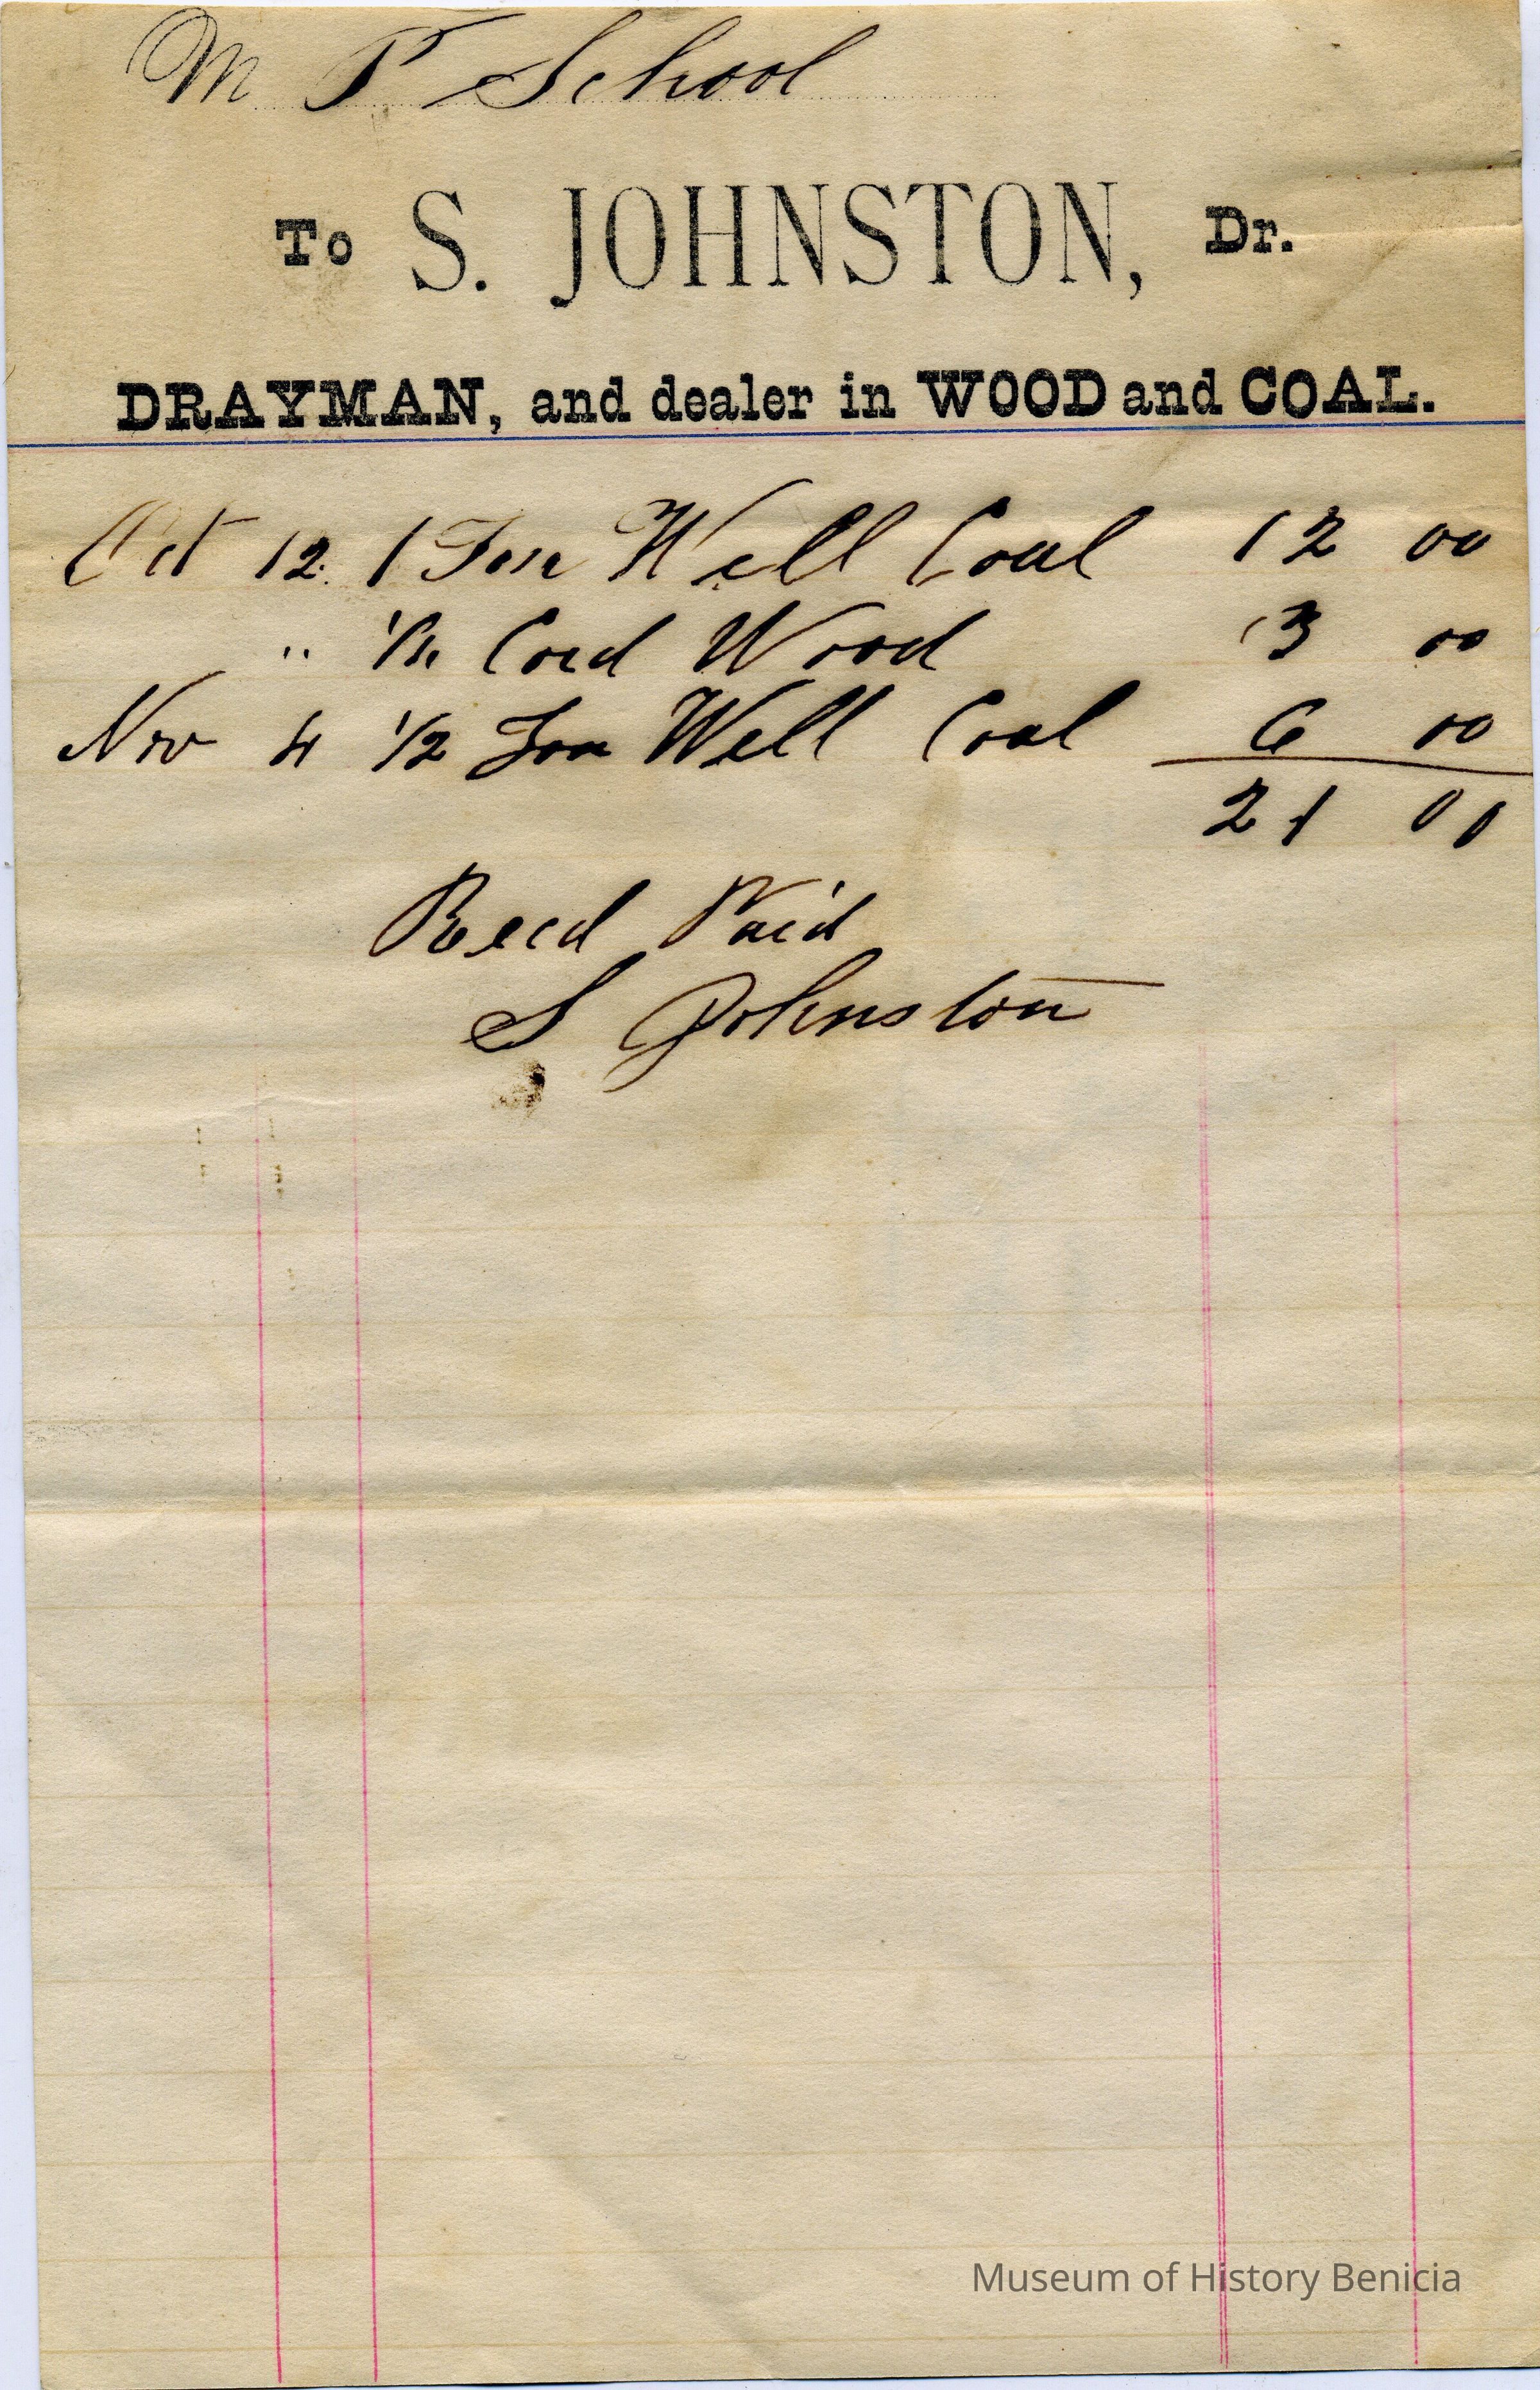 M P School
To S. JOHNSTON, Dr.
DRAYMAN, and dealer in WOOD and COAL.
Oct 12. 1 Ton Well Coal 12 00
" Cord Wood 3 00
Nov 4 1/2 Ton Well Coal 6 00
21 00
Recd Paid
S Johnston
Museum of History Benicia